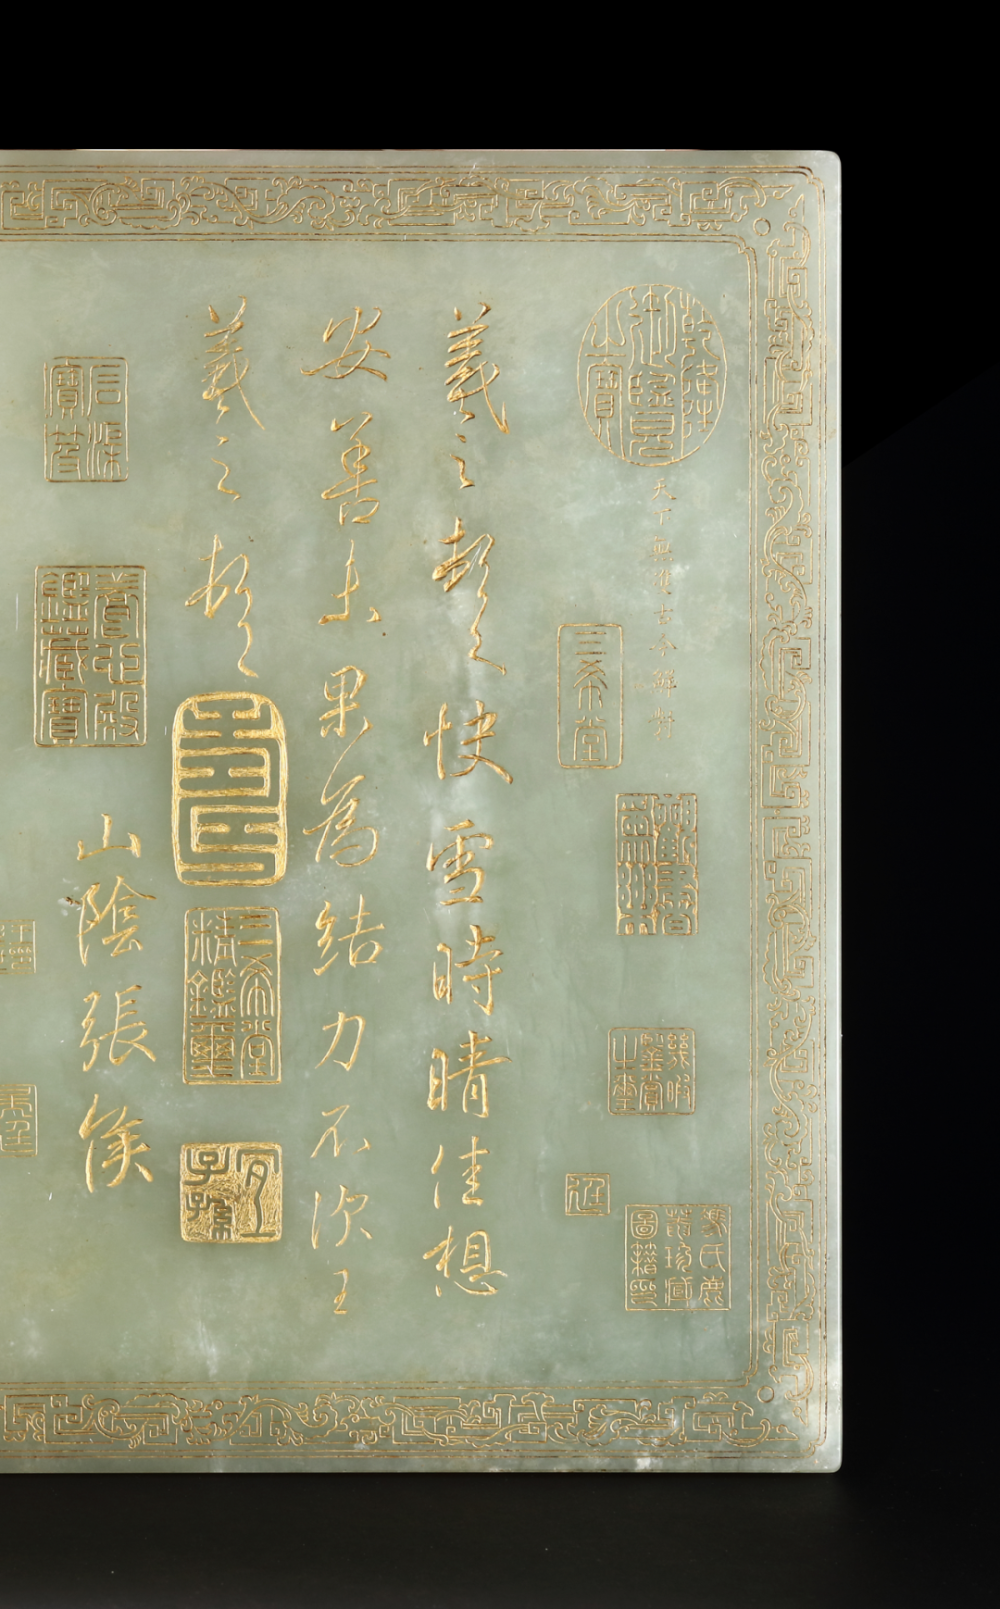 乾隆御覽之寶
天下無雙古今鮮對
三希堂
幾暇鑒賞之璽
羲之頓首快雪時晴佳想
安善未果為結力不次王
羲之頓首
三希堂精鑑璽
宜子孫
山陰張侯
石渠寶笈
養心殿鑑藏寶